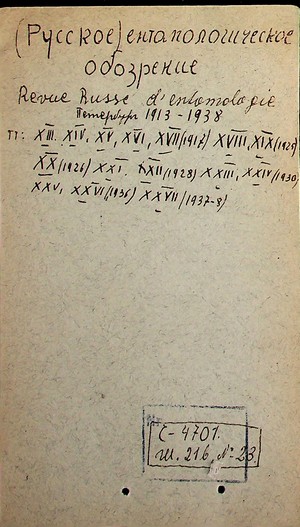 (Русское) ентапологическое
обозрение
Revue Russe d'entomologie
Петербург 1913-1938
ТТ: XIII. XIV, XV, XVI, XVII (1917) XVIII, XIX (1925)
XX (1926) XXI. XXII (1928) XXIII, XXIV (1930)
XXV, XXVI (1936) XXVII (1937-8)
С-4701.
ш. 216, №23